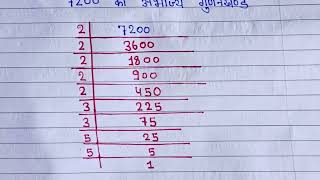 7200 का अभाज्य गुणनखण्ड
2 | 7200
2 | 3600
2 | 1800
2 | 900
2 | 450
3 | 225
3 | 75
5 | 25
5 | 5
1